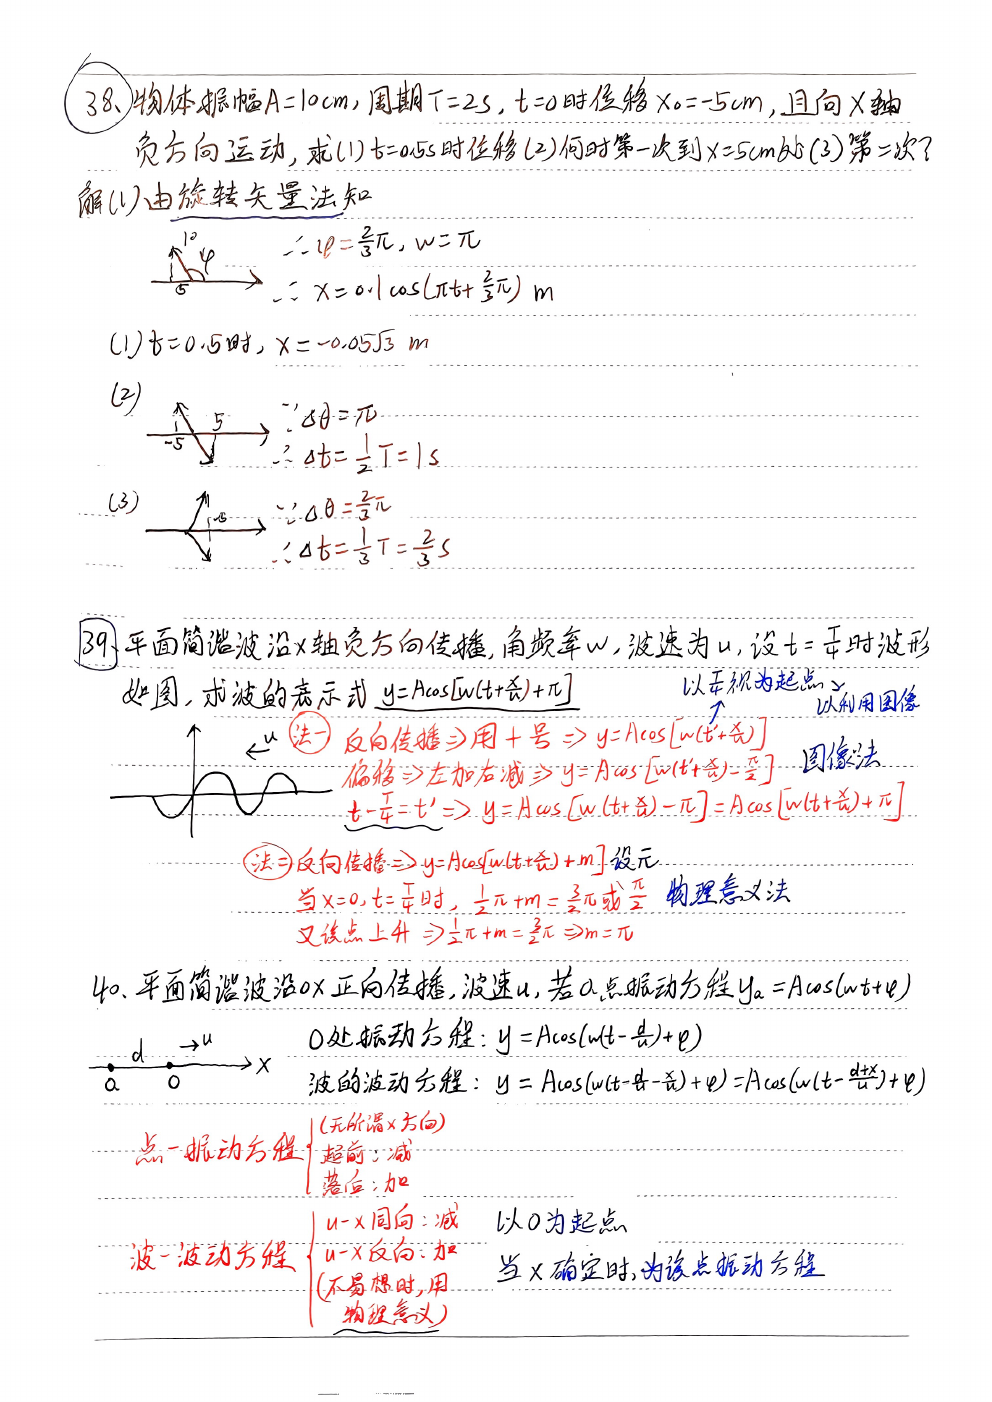 38、物体振幅A=10cm，周期T=2s，t=0时位移x₀=-5cm，且向x轴
负方向运动，求(1)t=0.5s时位移(2)何时第一次到x=5cm处(3)第二次？
解(1)、由旋转矢量法知
10 φ 5
∴φ=⅔π，w=π
∴ x=0.1cos(πt+⅔π) m
(1)t=0.5时，x=-0.05√3 m
(2)
-5 5
∵Δθ=π
∴Δt=½T=1s
(3)
∵Δθ=⅔π
∴Δt=⅓T=⅔s
39、平面简谐波沿x轴负方向传播，角频率w，波速为u，设t=T/4时波形
如图，求波的表示式 y=Acos[w(t+x/u)+π]
以T/4视为起点，以利用图像
u
法一 反向传播⇒用+号⇒y=Acos[w(t'+x/u)]
偏移⇒左加右减⇒y=Acos[w(t'+x/u)-π/2]
图像法
t-T/4=t'⇒y=Acos[w(t+x/u)-π]=Acos[w(t+x/u)+π]
法二 反向传播⇒y=Acos[w(t+x/u)+m] 设元
当x=0，t=T/4时，½π+m=3/2π或π/2 物理意义法
又该点上升⇒½π+m=3/2π⇒m=π
40、平面简谐波沿ox正向传播，波速u，若a点振动方程yₐ=Acos(wt+φ)
d u x a O
O处振动方程：y=Acos(w(t-d/u)+φ)
波的波动方程：y=Acos(w(t-d/u-x/u)+φ)=Acos(w(t-(d+x)/u)+φ)
点-振动方程
(无所谓x方向)
超前：减
落后：加
波-波动方程
u-x同向：减
u-x反向：加
(不易想时，用
物理意义)
以O为起点
当x确定时，为该点振动方程